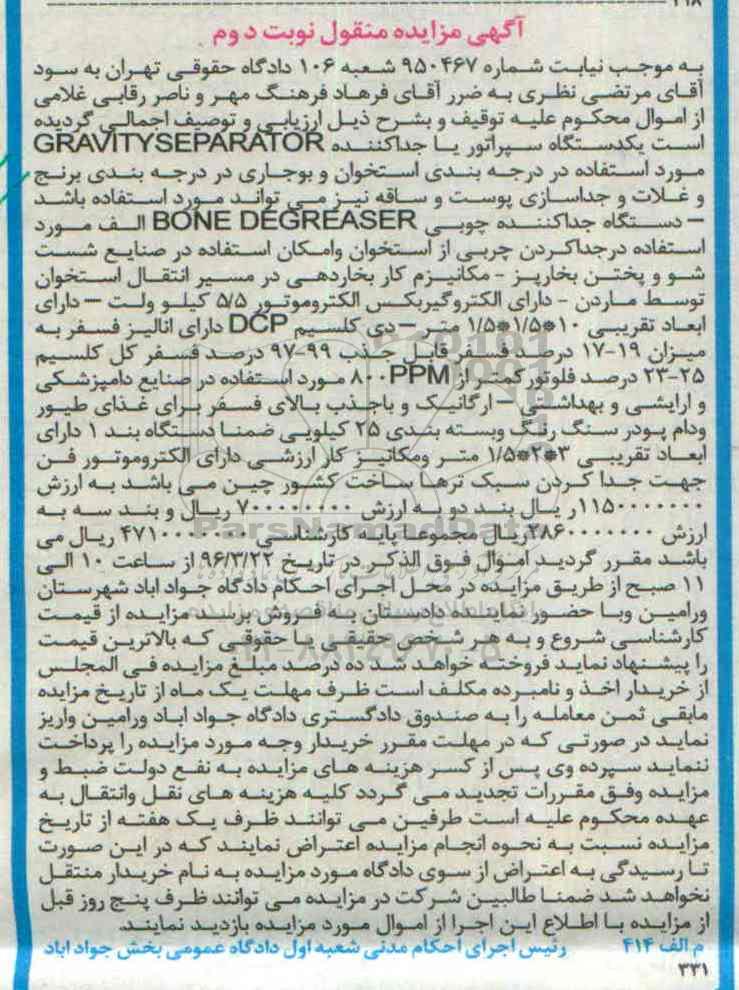 آگهی مزایده منقول نوبت دوم
به موجب نیابت شماره ۹۵۰۴۶۷ شعبه ۱۰۶ دادگاه حقوقی تهران به سود
آقای مرتضی نظری به ضرر آقای فرهاد فرهنگ مهر و ناصر رقابی غلامی
از اموال محکوم علیه توقیف و بشرح ذیل ارزیابی و توصیف اجمالی گردیده
است یکدستگاه سپراتور یا جداکننده GRAVITYSEPARATOR
مورد استفاده در درجه بندی استخوان و بوجاری در درجه بندی برنج
و غلات و جداسازی پوست و ساقه نیز می تواند مورد استفاده باشد
– دستگاه جداکننده چوبی BONE DEGREASER الف مورد
استفاده درجداکردن چربی از استخوان وامکان استفاده در صنایع شست
شو و پختن بخارپز - مکانیزم کار بخاردهی در مسیر انتقال استخوان
توسط ماردن - دارای الکتروگیربکس الکتروموتور ۵/۵ کیلو ولت – دارای
ابعاد تقریبی ۱۰*۱/۵*۱/۵ متر – دی کلسیم DCP دارای انالیز فسفر به
میزان ۱۹-۱۷ درصد فسفر قابل جذب ۹۹-۹۷ درصد فسفر کل کلسیم
۲۵-۲۳ درصد فلوئور کمتر از ۸۰۰PPM مورد استفاده در صنایع دامپزشکی
و ارایشی و بهداشتی – ارگانیک و باجذب بالای فسفر برای غذای طیور
ودام پودر سنگ رنگ وبسته بندی ۲۵ کیلویی ضمنا دستگاه بند ۱ دارای
ابعاد تقریبی ۳*۲*۱/۵ متر ومکانیز کار ارزشی دارای الکتروموتور فن
جهت جدا کردن سبک ترها ساخت کشور چین می باشد به ارزش
ریال بند دو به ارزش ریال و بند سه به
ارزش ریال مجموعا پایه کارشناسی ریال می
باشد مقرر گردید اموال فوق الذکر در تاریخ ۹۶/۳/۲۲ از ساعت ۱۰ الی
۱۱ صبح از طریق مزایده در محل اجرای احکام دادگاه جواد اباد شهرستان
ورامین وبا حضور نماینده دادستان به فروش برسد مزایده از قیمت
کارشناسی شروع و به هر شخص حقیقی یا حقوقی که بالاترین قیمت
را پیشنهاد نماید فروخته خواهد شد ده درصد مبلغ مزایده فی المجلس
از خریدار اخذ و نامبرده مکلف است ظرف مهلت یک ماه از تاریخ مزایده
مابقی ثمن معامله را به صندوق دادگستری دادگاه جواد اباد ورامین واریز
نماید در صورتی که در مهلت مقرر خریدار وجه مورد مزایده را پرداخت
ننماید سپرده وی پس از کسر هزینه های مزایده به نفع دولت ضبط و
مزایده وفق مقررات تجدید می گردد کلیه هزینه های نقل وانتقال به
عهده محکوم علیه است طرفین می توانند ظرف یک هفته از تاریخ
مزایده نسبت به نحوه انجام مزایده اعتراض نمایند که در این صورت
تا رسیدگی به اعتراض از سوی دادگاه مورد مزایده به نام خریدار منتقل
نخواهد شد ضمنا طالبین شرکت در مزایده می توانند ظرف پنج روز قبل
از مزایده با اطلاع این اجرا از اموال مورد مزایده بازدید نمایند.
م الف ۴۱۴ رئیس اجرای احکام مدنی شعبه اول دادگاه عمومی بخش جواد اباد
۳۳۱